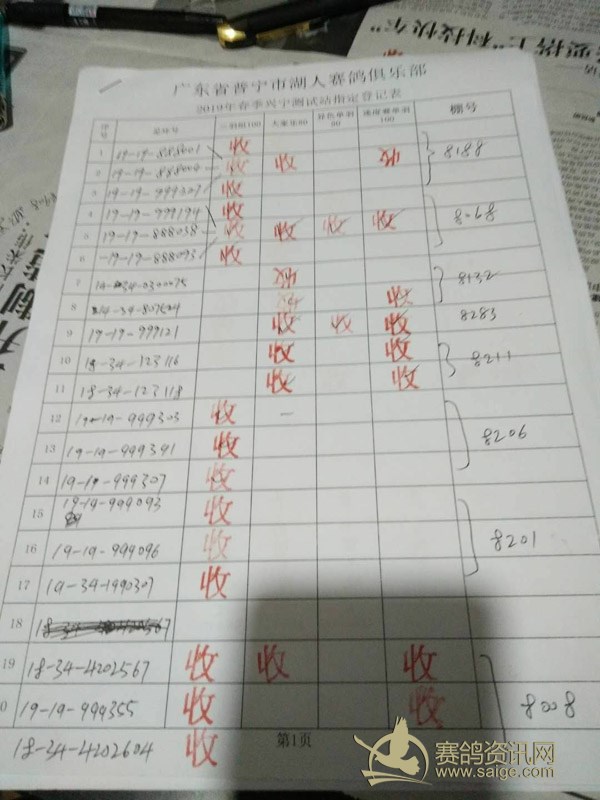 广东省普宁市湖人赛鸽俱乐部
2019年春季兴宁测试站指定登记表
序号 足环号 三羽组100 大家乐50 异色单羽50 速度赛单羽100 棚号
1 19-19-888001 收
2 19-19-888002 收 收 收 8188
3 19-19-999207 收
4 19-19-999194 收
5 19-19-888038 收 收 收 收 8068
6 19-19-888093 收
7 收 8132
8 收 收
9 19-19-999121 收 收 收 8283
10 18-34-123116 收 收 8211
11 18-34-123118 收 收
12 19-19-999303 收 —
13 19-19-999391 收 8206
14 19-19-999307 收
15 19-19-999093 收
16 19-19-999096 收 8201
17 19-34-1990307 收
18
19 18-34-4202567 收 收 收
0 19-19-999355 收 收 8008
18-34-4202604 收
第1页
赛鸽资讯网
www.saige.com